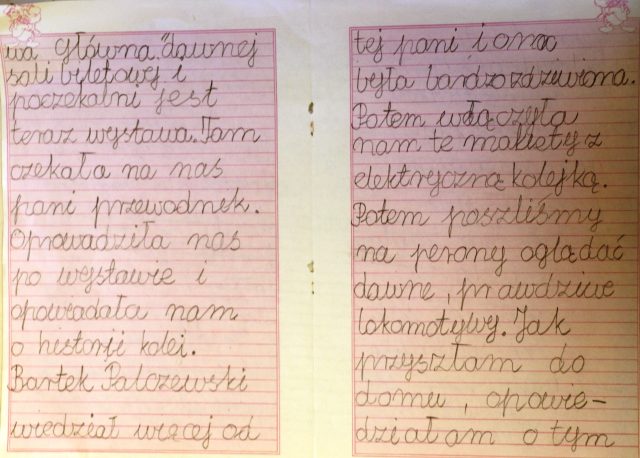 wa Główna."dawnej
sali biletowej i
poczekalni jest
teraz wystawa. Tam
czekała na nas
pani przewodnik.
Oprowadziła nas
po wystawie i
opowiadała nam
o historii kolei.
Bartek Palczewski
wiedział więcej od
tej pani i ona
była bardzo zdziwiona.
Potem włączyła
nam te makiety z
elektryczną kolejką.
Potem poszliśmy
na perony oglądać
dawne, prawdziwe
lokomotywy. Jak
przyszłam do
domu, opowie-
działam o tym